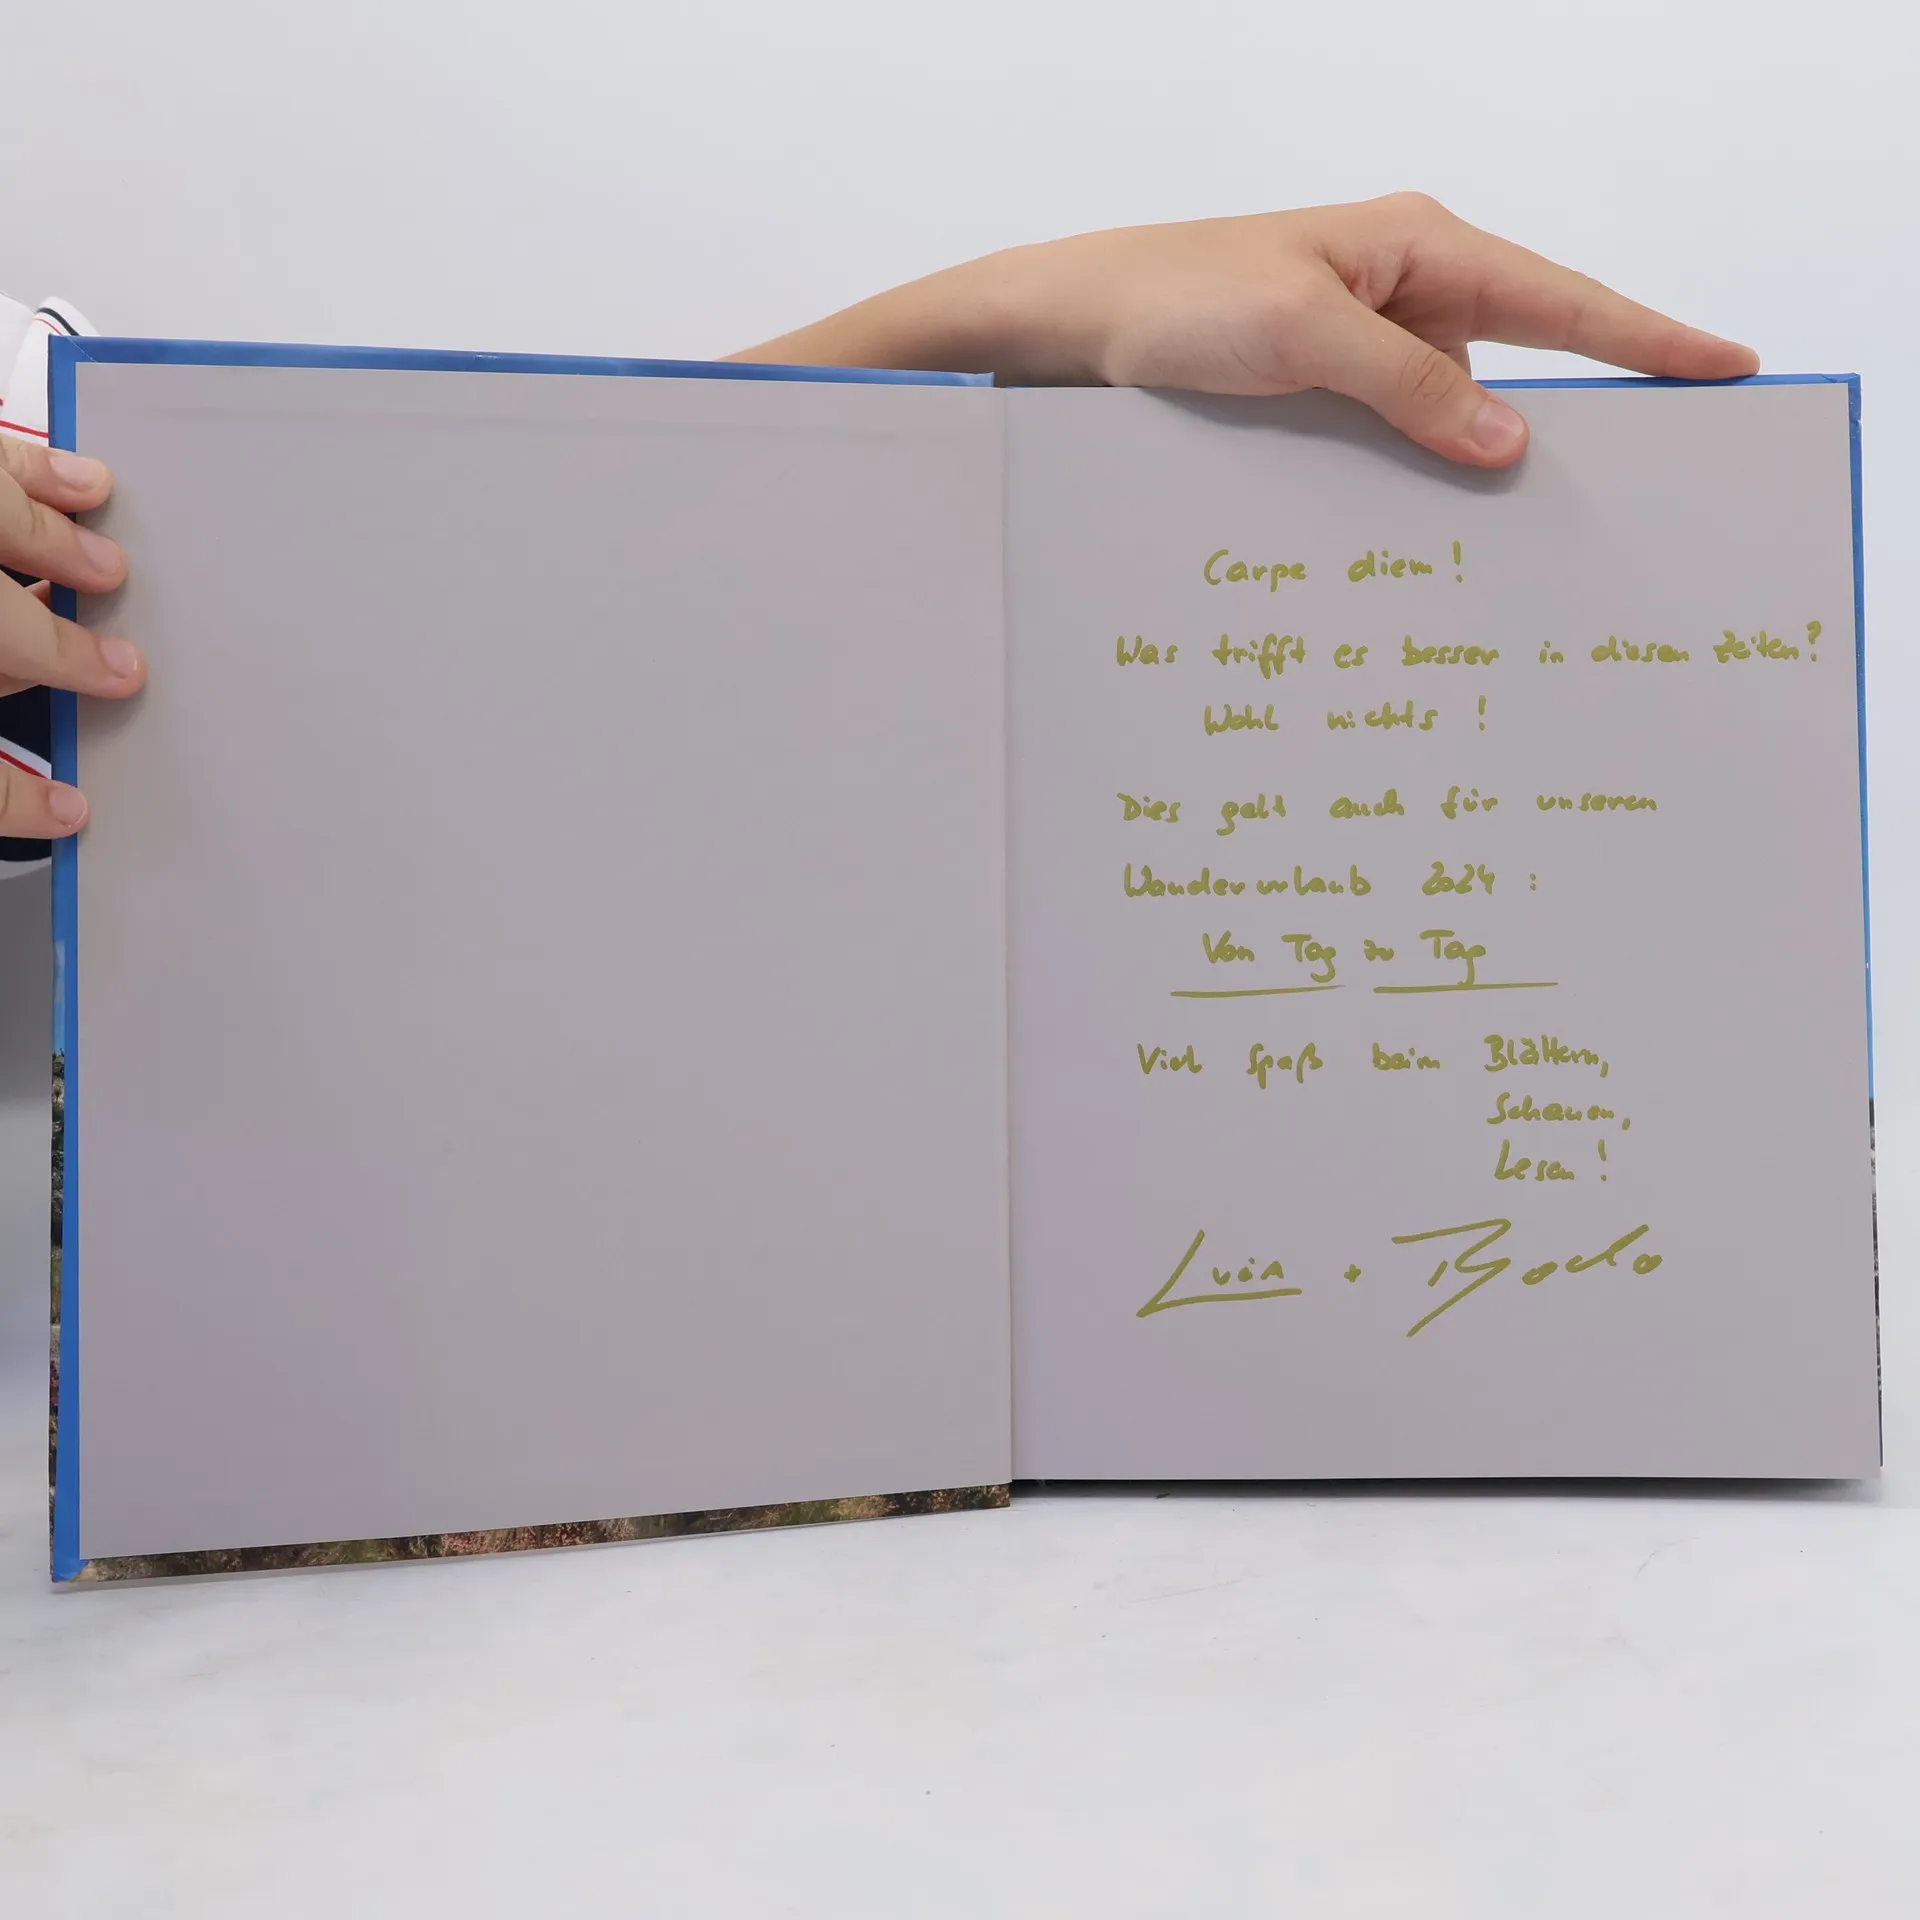 Carpe diem!
Was trifft es besser in diesen Zeiten?
Wohl nichts!
Dies gelt auch für unseren
Wanderurlaub 2024:
Von Tag zu Tag
Viel Spaß beim Blättern,
Schauen,
Lesen!
Luia + Bodo